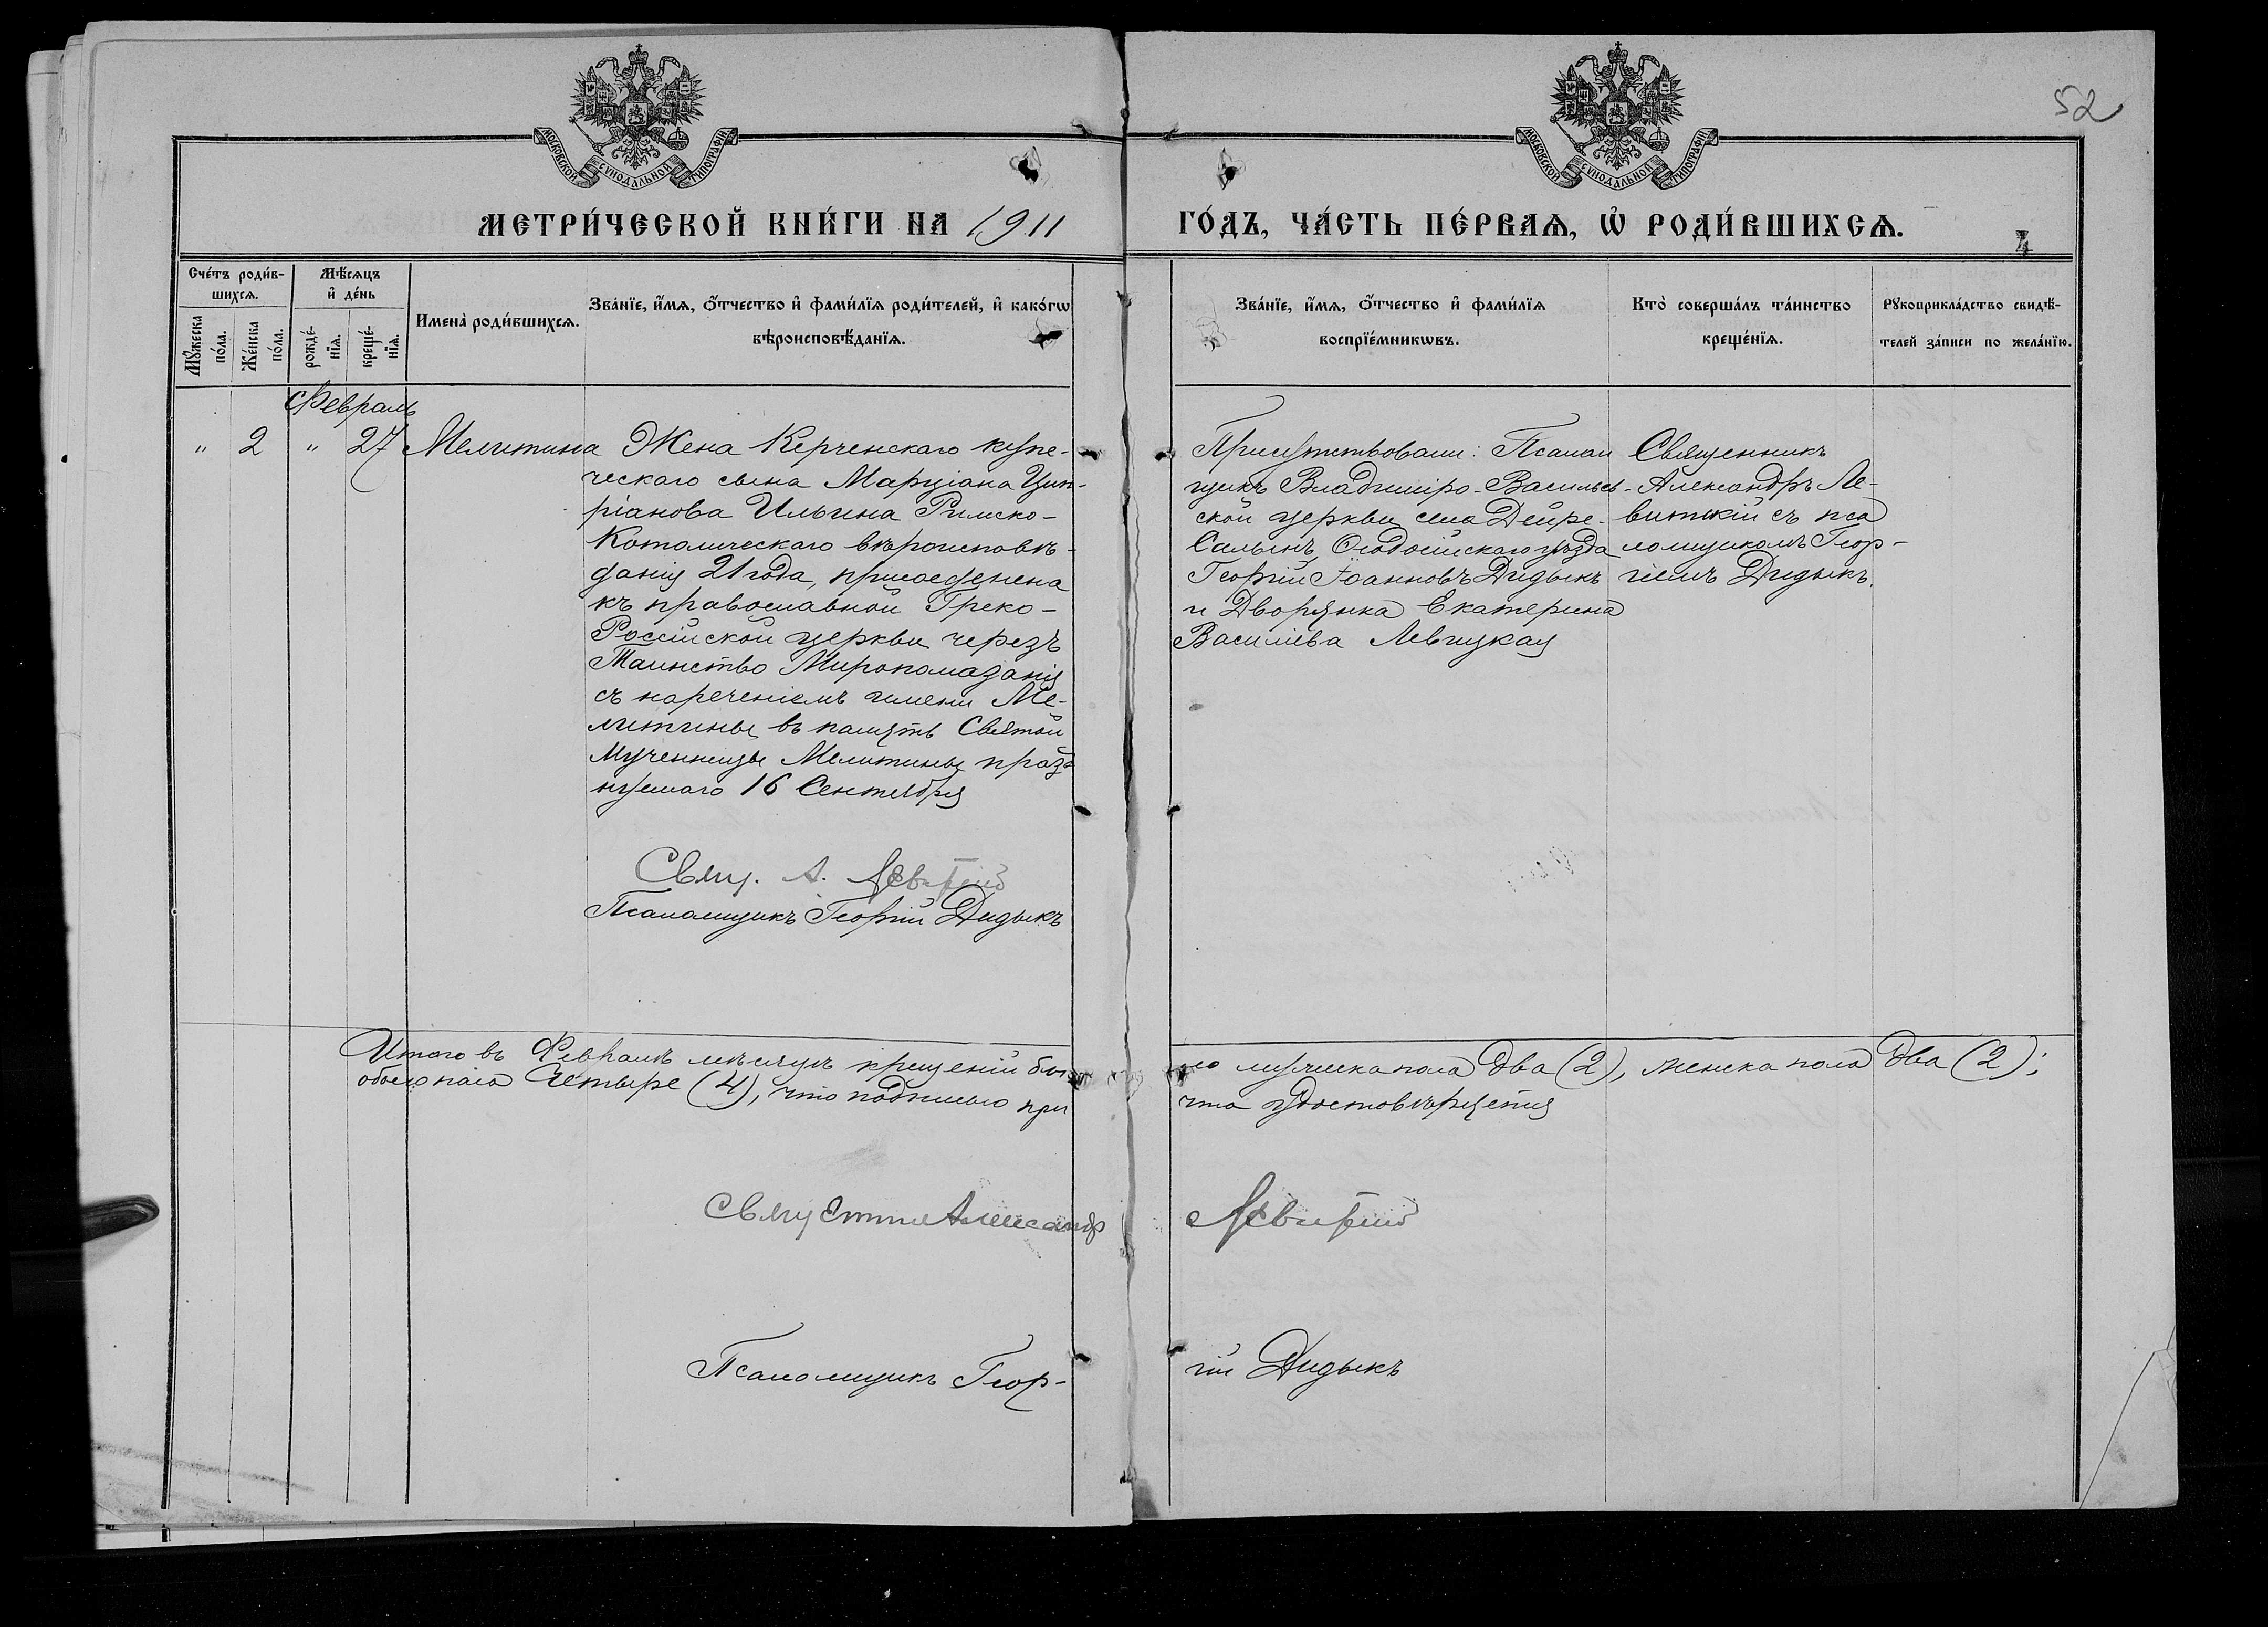 МОСКОВСКОЙ СѴНОДАЛЬНОЙ ТИПОГРАФІИ
МОСКОВСКОЙ СѴНОДАЛЬНОЙ ТИПОГРАФІИ
52
МЕТРИ́ЧЕСКОЙ КНИ́ГИ НА 1911
ГО́ДЪ, ЧА́СТЬ ПЕ́РВАѦ, Ѽ РОДИ́ВШИХСѦ.
4
Сче́тъ роди́в-
шихсѧ.
Мѣ́сѧцъ
и҆ де́нь
Мꙋ́жеска по́ла.
Же́нска по́ла.
рожде́-
нїѧ.
креще́-
нїѧ.
Имена̀ роди́вшихсѧ.
Зва́нїе, и҆́мѧ, ѻ҆́тчество и҆ фами́лїѧ роди́телей, и҆ како́гѡ
вѣроисповѣ́данїѧ.
Зва́нїе, и҆́мѧ, ѻ҆́тчество и҆ фами́лїѧ
воспрїе́мникѡвъ.
Кто̀ соверша́лъ та́инство
креще́нїѧ.
Рꙋкоприкла́дство свидѣ́-
телей за́писи по жела́нїю.
Февраль
" 2 " 27 Мелитина
Жена Керченскаго купе-
ческаго сына Марціана Цип-
ріанова Ильина Римско-
Католическаго вѣроисповѣ-
данія 21 года, присоеденена
къ православной Греко-
Россійской церкви черезъ
Таинство Миропомазанія
съ нареченіемъ имени Ме-
литины въ память Святой
Мученницы Мелитины празд
нуемаго 16 Сентября
Свящ. А. Левитскій
Псаломщикъ Георгій Дидыкъ
Присутствовали: Псалом
щикъ Владиміро-Васильев-
ской церкви села Дейре-
Салынъ, Ѳеодосійскаго уѣзда
Георгій Іоанновъ Дидыкъ
и Дворянка Екатерина
Василіева Левицкая
Священникъ
Александръ Ле-
витскій съ пса
ломщикомъ Геор-
гіемъ Дидыкъ.
Итого въ Февралѣ мѣсяцѣ крещеній бы
ло мужеска пола Два (2), женска пола Два (2);
обоего пола Четыре (4), что подписью при
чта удостовѣряется
Священник Александр Левитскій
Псаломщикъ Геор-
гій Дидыкъ